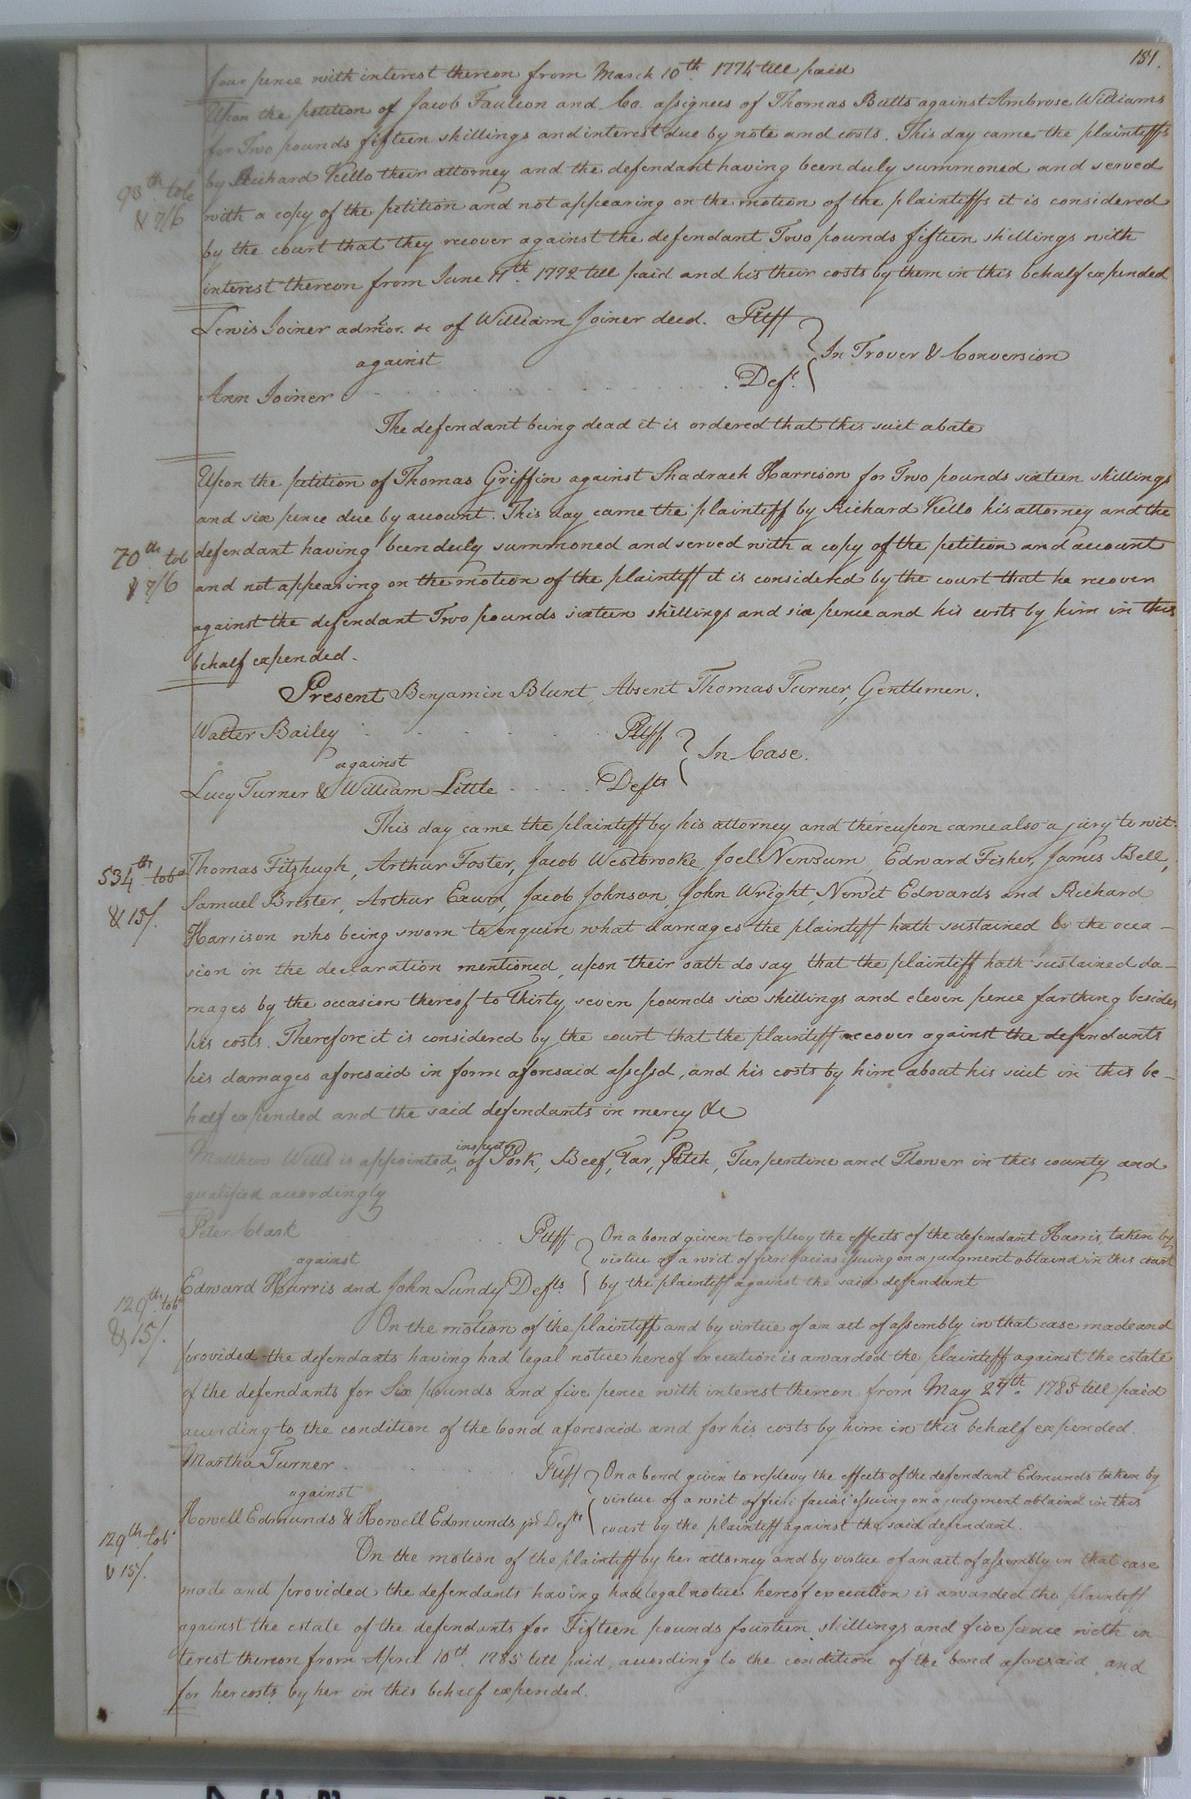 181.
four pence with interest thereon from March 10th. 1774 till paid
Upon the petition of Jacob Faulcon and Co. assignees of Thomas Butts against Ambrose Williams
for Two pounds fifteen shillings and interest due by note and costs. This day came the plaintiffs
by Richard Kello their attorney and the defendant having been duly summoned and served
93th tob
& 7/6
with a copy of the petition and not appearing on the motion of the plaintiffs it is considered
by the court that they recover against the defendant Two pounds fifteen shillings with
interest thereon from June 11th. 1772 till paid and his their costs by them in this behalf expended
Lewis Joiner admor. &c of William Joiner decd. Pltff
against
In Trover & Conversion
Ann Joiner Deft.
The defendant being dead it is ordered that this suit abate
Upon the petition of Thomas Griffin against Shadrach Harrison for Two pounds sixteen shillings
and six pence due by account. This day came the plaintiff by Richard Kello his attorney and the
70th tob
& 7/6
defendant having been duly summoned and served with a copy of the petition and account
and not appearing on the motion of the plaintiff it is considered by the court that he recover
against the defendant Two pounds sixteen shillings and six pence and his costs by him in this
behalf expended.
Present Benjamin Blunt, Absent Thomas Turner, Gentlemen.
Walter Bailey Pltff
against
In Case.
Lucy Turner & William Little Defts
This day came the plaintiff by his attorney and thereupon came also a jury to wit
534th tobo
& 15/.
Thomas Fitzhugh, Arthur Foster, Jacob Westbrooke, Joel Newsum, Edward Fisher, James Bell,
Samuel Brister, Arthur Exum, Jacob Johnson, John Wright, Newit Edwards and Richard
Harrison who being sworn to enquire what damages the plaintiff hath sustained by the occa-
sion in the declaration mentioned, upon their oath do say that the plaintiff hath sustained da-
mages by the occasion thereof to Thirty seven pounds six shillings and eleven pence farthing besides
his costs. Therefore it is considered by the court that the plaintiff recover against the defendants
his damages aforesaid in form aforesaid assessd, and his costs by him about his suit in this be-
half expended and the said defendants in mercy &c
Matthew Wills is appointed inspector of Pork, Beef, Tar, Pitch, Turpentine and Flower in this county and
qualified accordingly
Peter Clark Pltff
against
Edward Harris and John Lundy Defts
On a bond given to replevy the effects of the defendant Harris, taken by
virtue of a writ of fieri facias issuing on a judgment obtaind in this court
by the plaintiff against the said defendant
129th tobo
& 15/.
On the motion of the plaintiff and by virtue of an act of assembly in that case made and
provided the defendants having had legal notice hereof execution is awarded the plaintiff against the estate
of the defendants for Six pounds and five pence with interest thereon from May 27th. 1785 till paid
according to the condition of the bond aforesaid and for his costs by him in this behalf expended.
Martha Turner Pltff
against
Howell Edmunds & Howell Edmunds jr Defts
On a bond given to replevy the effects of the defendant Edmunds taken by
virtue of a writ of fieri facias issuing on a judgment obtaind in this
court by the plaintiff against the said defendant.
129th tobo
& 15/.
On the motion of the plaintiff by her attorney and by virtue of an act of assembly in that case
made and provided the defendants having had legal notice hereof execution is awarded the plaintiff
against the estate of the defendants for Fifteen pounds fourteen shillings and five pence with in
terest thereon from April 10th. 1785 till paid, according to the condition of the bond aforesaid and
for her costs by her in this behalf expended.